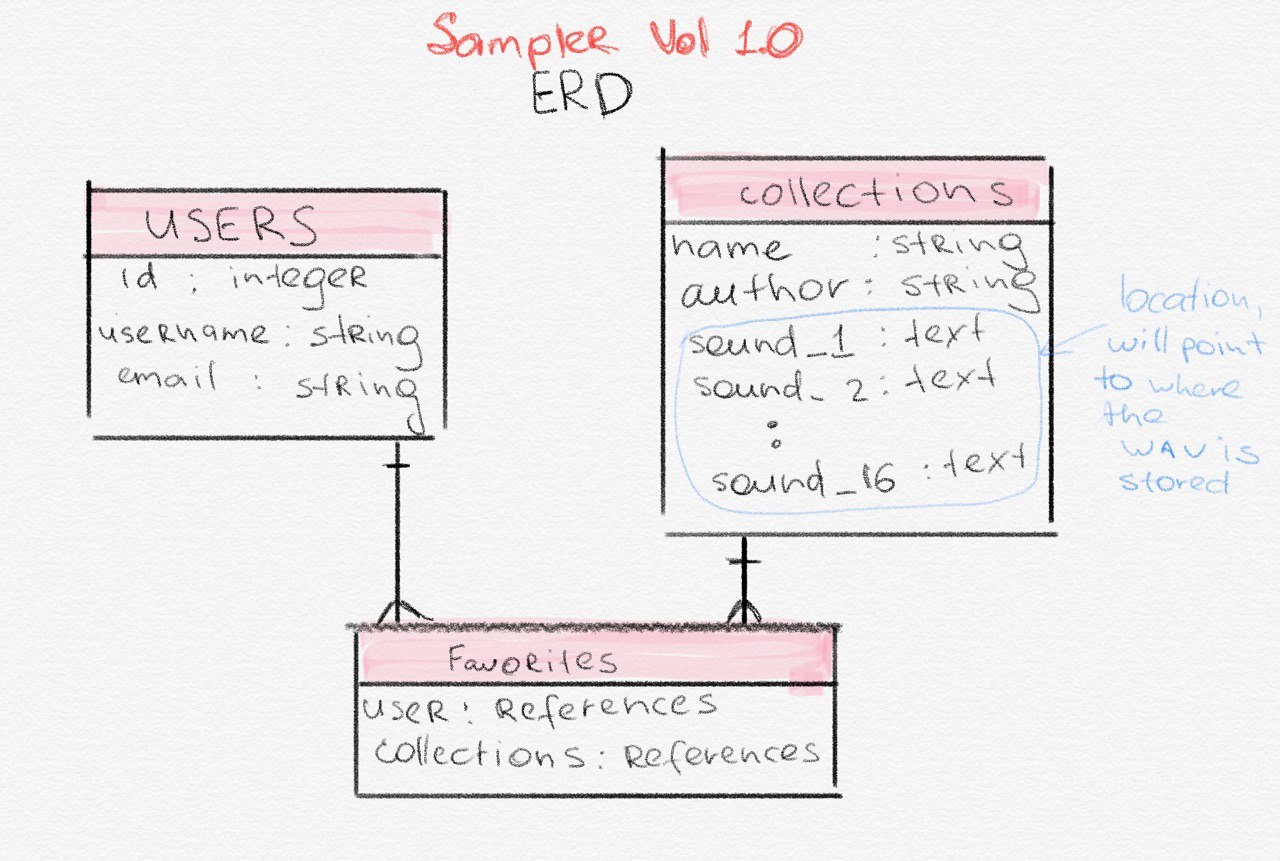 Sampler Vol 1.0
ERD
USERS
id : integer
username : string
email : string
collections
name : string
author : string
sound_1 : text
sound_2 : text
:
sound_16 : text
location,
will point
to where
the
WAV is
stored
Favorites
user : References
collections : References